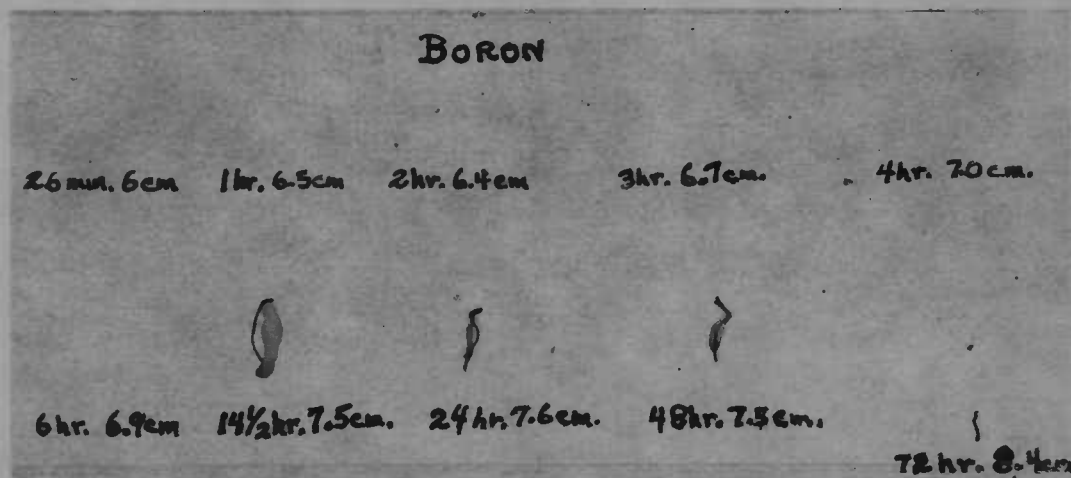 BORON
26 min. 6cm 1hr. 6.5cm 2hr. 6.4cm 3hr. 6.7cm. 4hr. 7.0cm.
6hr. 6.9cm 14½hr. 7.5cm. 24hr. 7.6cm. 48hr. 7.3cm.
72hr. 8.4cm